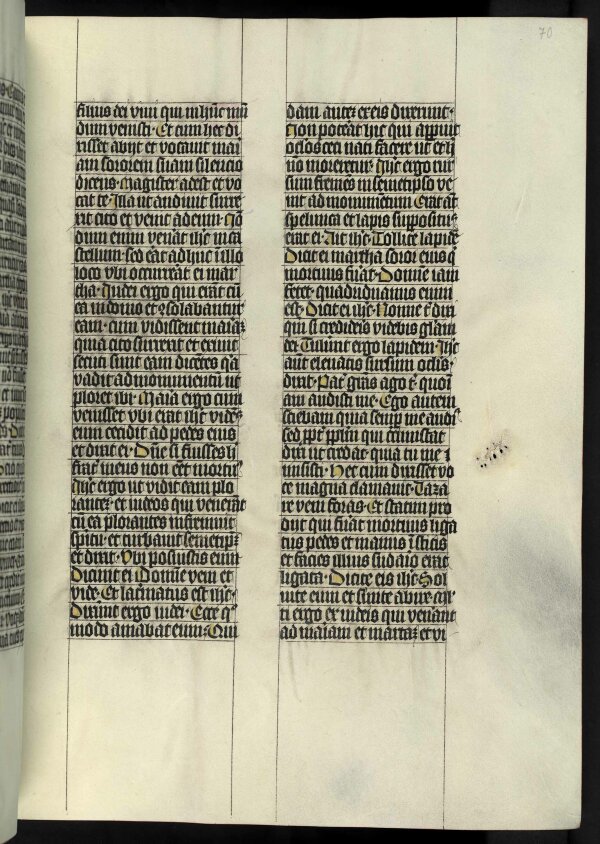 70
filius dei vivi qui in hūc mū
dum venisti· Et cum hec di
xisset abijt et vocavit mari
am sororem suam silencio
dicens· Magister adest et vo
cat te· Illa ut audivit surre
xit cito et venit ad eum· Nō
dum enim venāt ihc in ca
stellum· sed erāt adhuc in illo
loco ubi occurreāt ei mar
tha· Iudei ergo qui erāt cū
ea in domo et ꝯsolabantur
eam· cum vidissent mariaȝ
quia cito surrexit et exiuit
secuti sunt eam dicētes q̄a
vadit ad monumentū ut
ploret ibi· Maria ergo cum
venisset ubi erat ihc videns
eum cecidit ad pedes eius
et dixit ei· Dn̄e si fuisses h̄
frat̄ meus non eēt mortu9
Ihc ergo ut vidit eam plo
rantē et iudeos qui venerāt
cū ea plorantes infremuit
spiritu et turbauit semetip̄ȝ
et dixit· Ubi posuistis eum
Dicunt ei Domine veni et
vide· Et lacrimatus est ihc·
Dixerūt ergo iudei· Ecce q͛
modo amabat eum· Qui
dam autē ex eis dixerunt·
Non poteāt hic qui aperuit
oclos ceci nati facere ut et h̄
nō moreretur· Ihc ergo rur
sum fremēs in semetipso ve
nit ad monumentum· Erat āt
spelunca et lapis supposit9
erat ei· Ait ihc· Tollite lapidē
Dicit ei martha soror eius q̄
mortuus fuāt· Domine iam
fetet· quadriduanus enim
est· Dicit ei ihc· Nonne t̄ dixi
qui si credideris videbis gl̄am
dei· Tulerūt ergo lapidem· Ihc
aūt elevatis sursum oclis·
dixit· Pat̄ grās ago t̄ quoniā
am audisti me· Ego autem
sciebam quia semp̄ me audis
sed ppt̄ pplm̄ qui circūstat
dixi ut credāt quia tu me
misisti· Hec cum dixisset vo
ce magna clamavit· Laza
re veni foras· Et statim pro
dijt qui fuāt mortuus liga
tus pedes et manus īstitis
et facies illius sudario erat
ligata· Dicit eis ihc· Sol
uite eum et sinite abire· M̄l
ti ergo ex iudeis qui venāt
ad mariam et marthā et vi